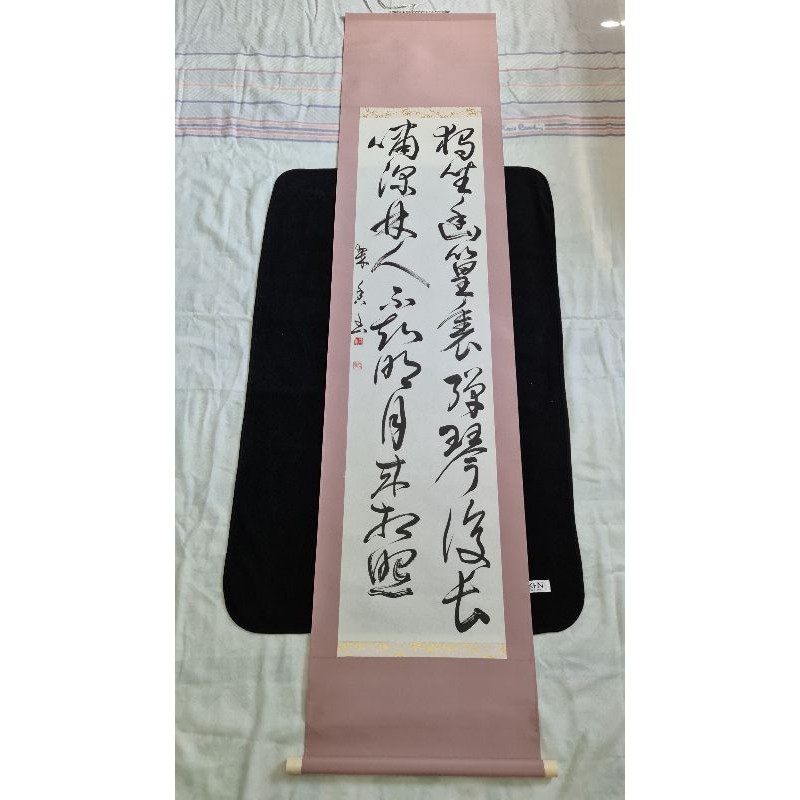 独坐幽篁裏弾琴復長
嘯深林人不知明月来相照